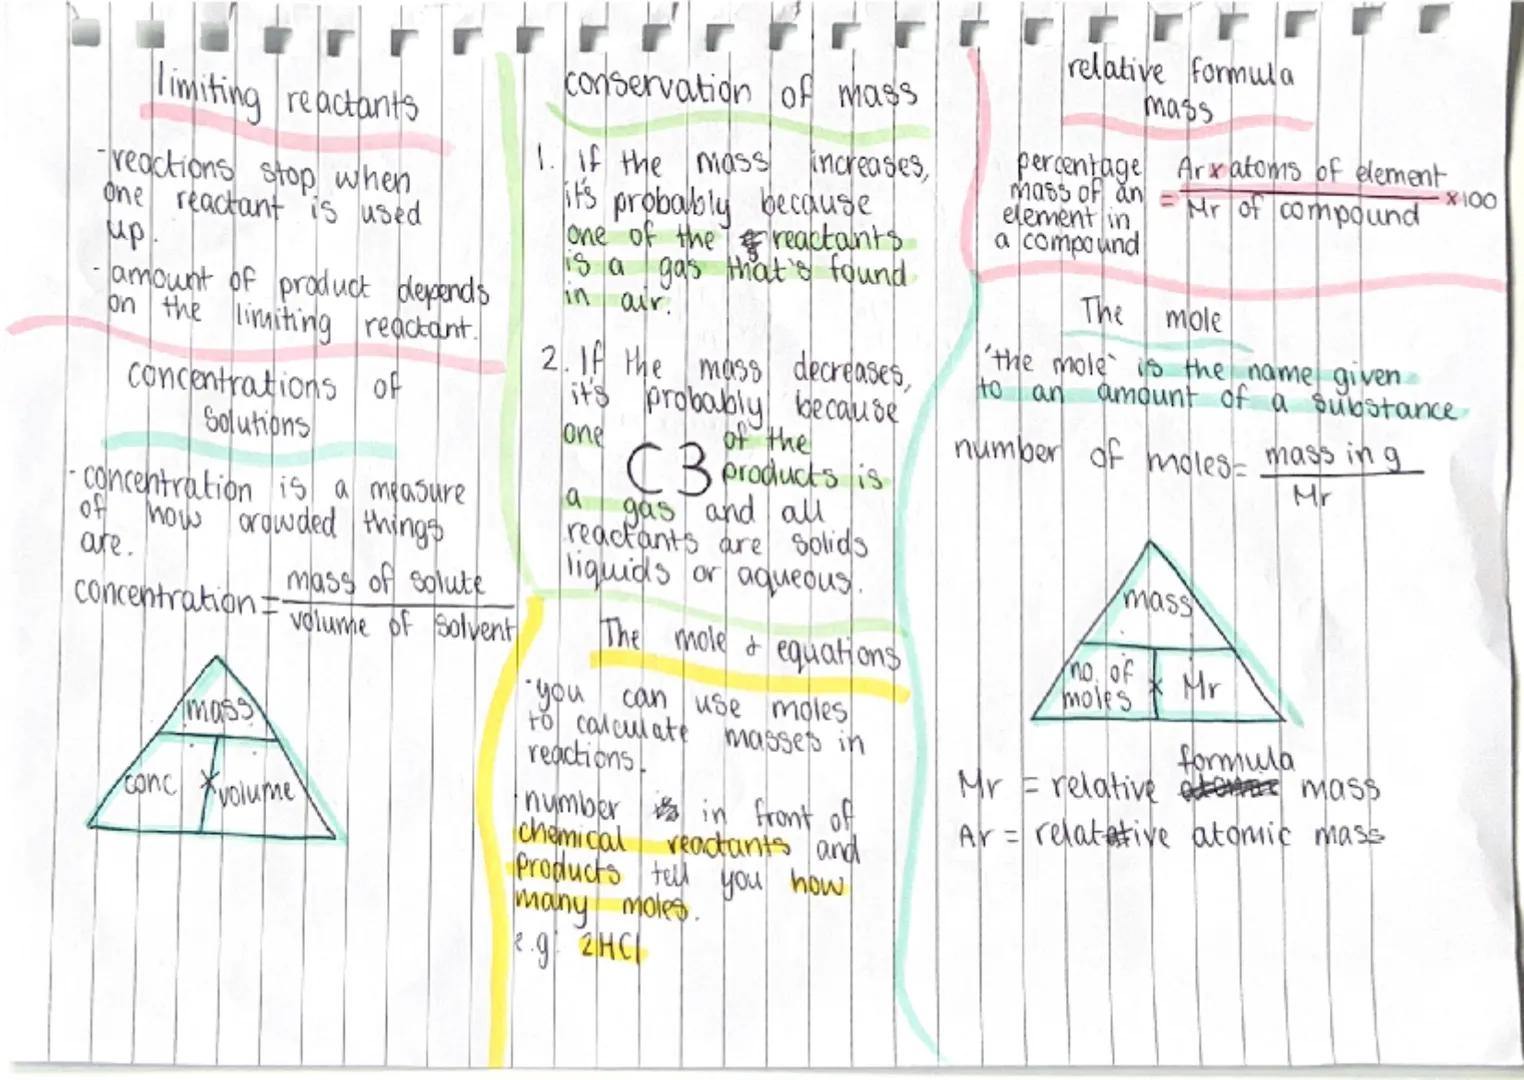 limiting reactants
-reactions stop when
one reactant is used
up.
- amount of product depends
on the limiting reactant.
concentrations of
solutions
- concentration is a measure
of how crowded things
are.
concentration = mass of solute
volume of solvent
mass
conc × volume
conservation of mass
1. If the mass increases,
it's probably because
one of the reactants
is a gas that's found
in air.
2. If the mass decreases,
it's probably because
one of the
C3
products is
a gas and all
reactants are solids
liquids or aqueous.
The mole & equations
- you can use moles
to calculate masses in
reactions.
- number in front of
chemical reactants and
products tell you how
many moles.
e.g. 2HCl
relative formula
mass
percentage
mass of an
element in
a compound
= Ar x atoms of element
Mr of compound
x100
The mole
'the mole' is the name given
to an amount of a substance
number of moles = mass in g
Mr
mass
no. of
moles × Mr
formula
Mr = relative mass
Ar = relative atomic mass